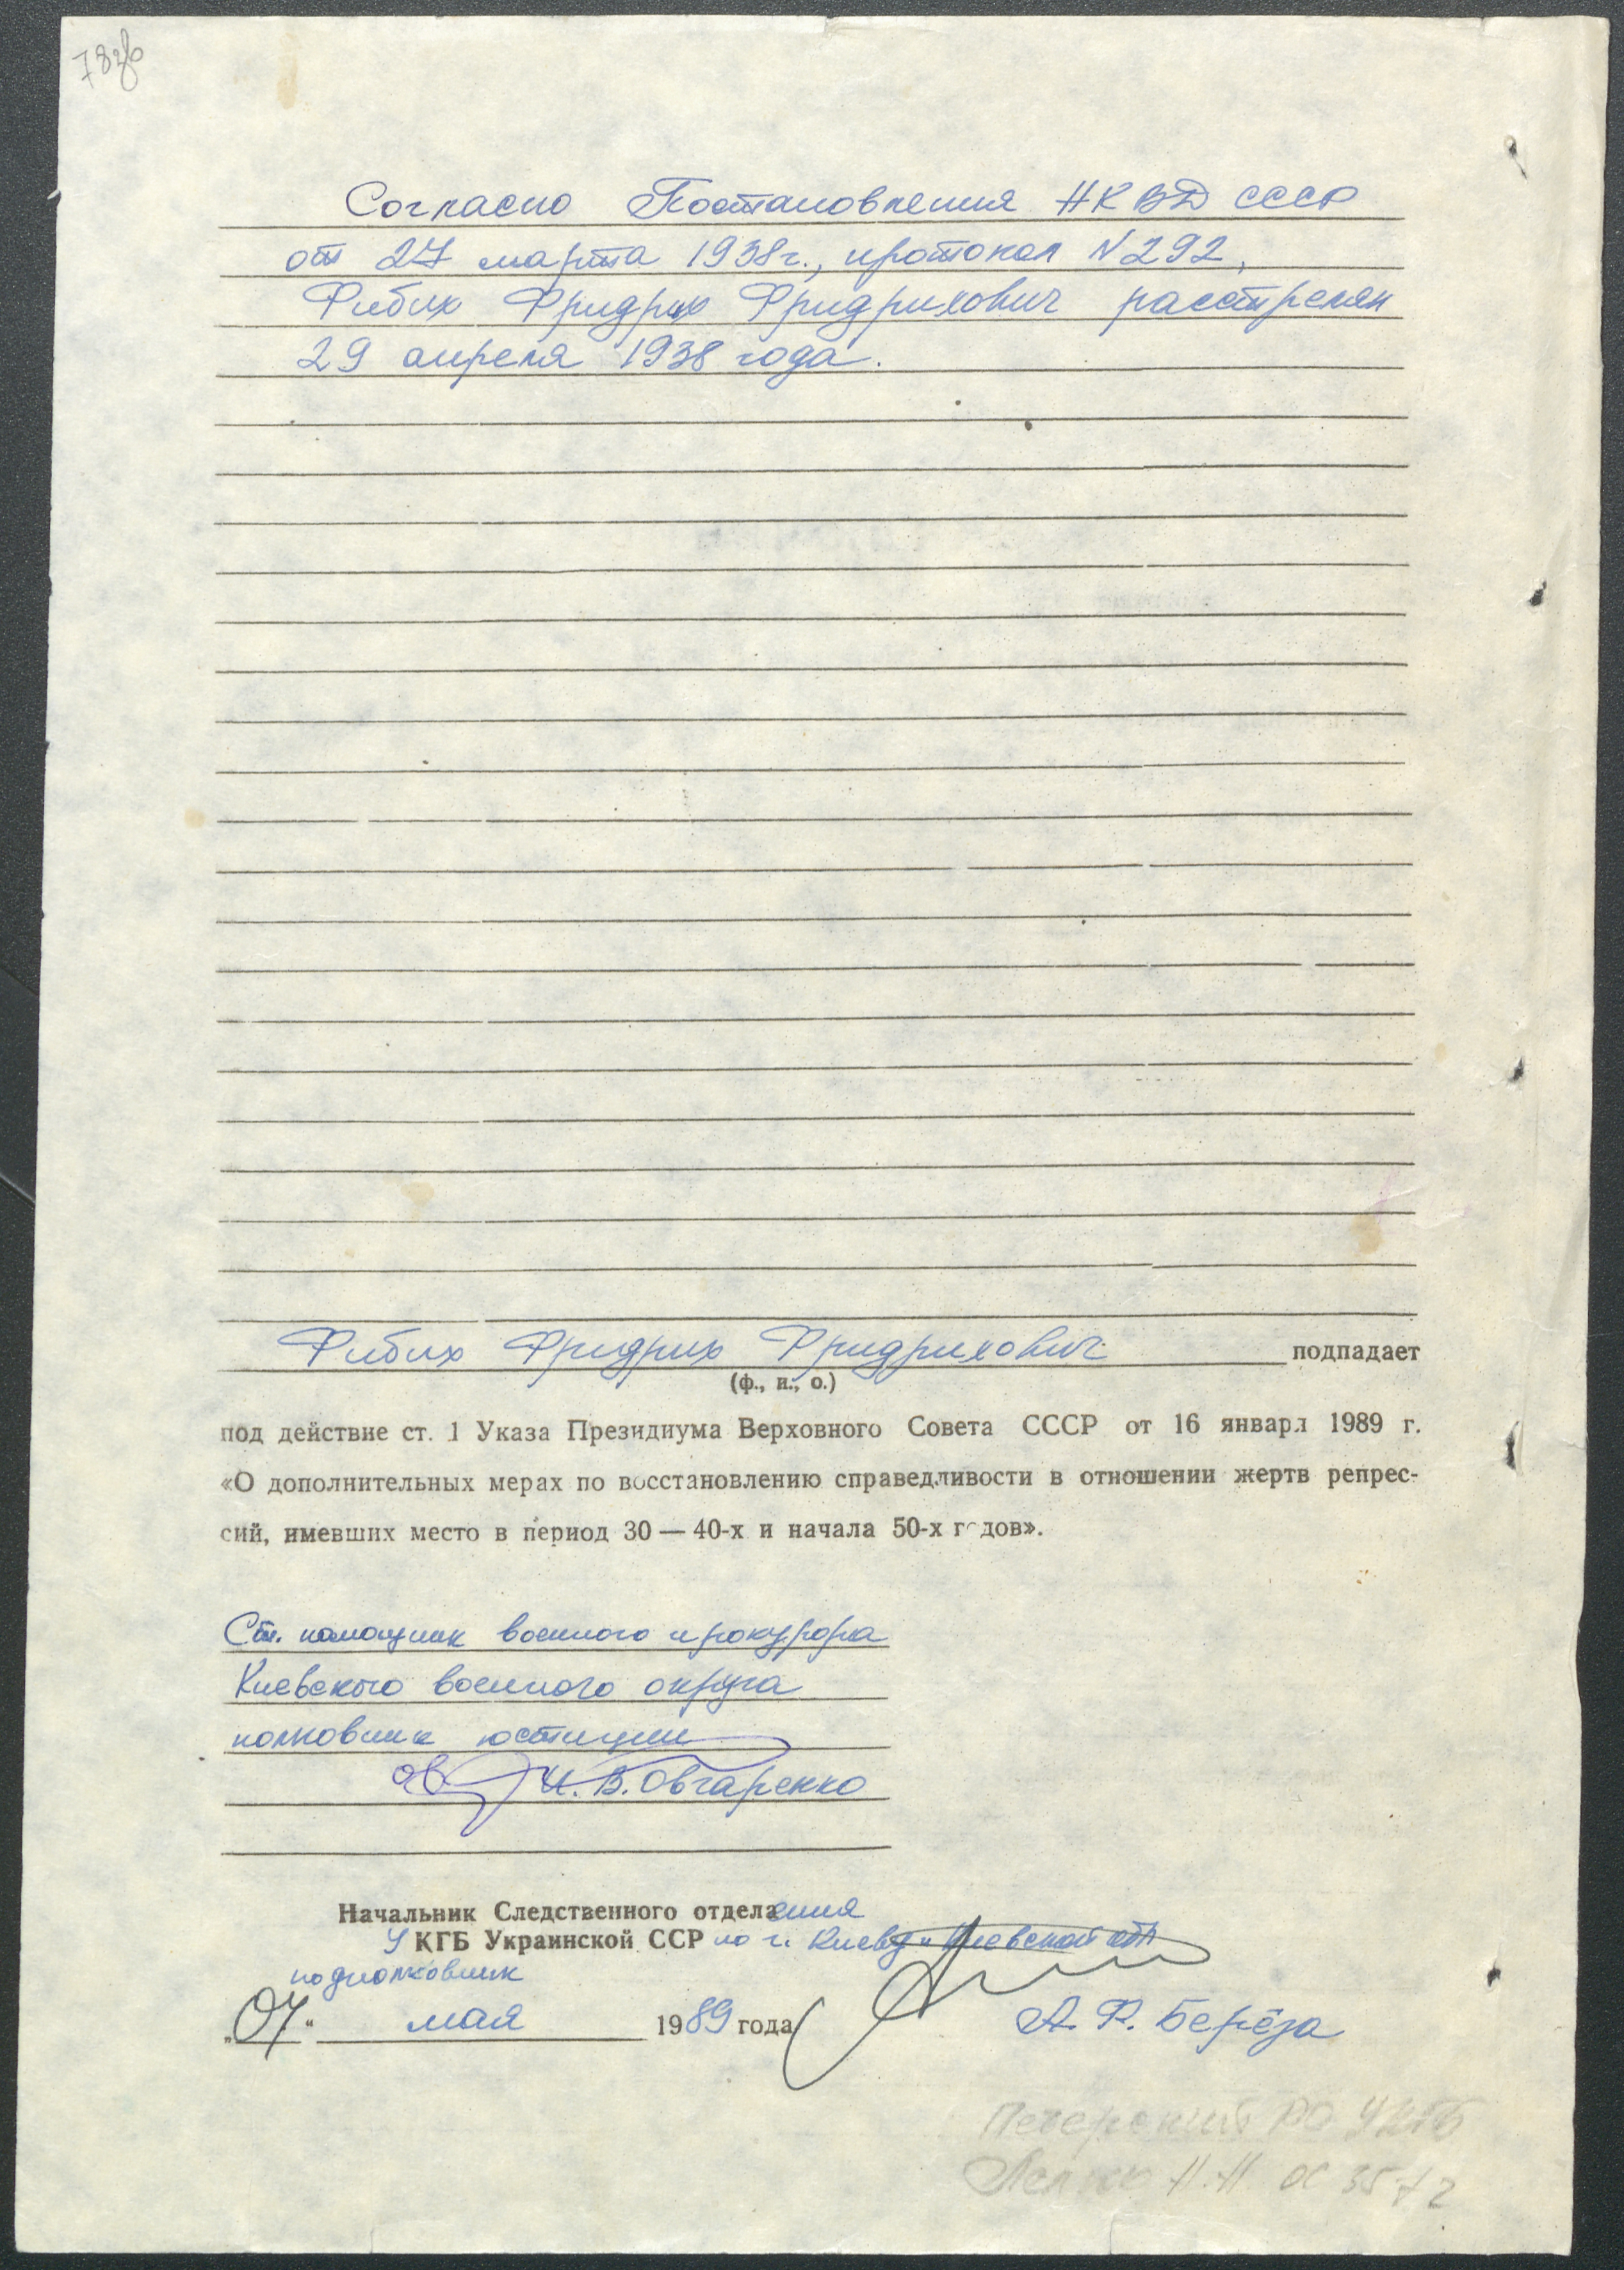 78об
Согласно Постановления НКВД СССР
от 27 марта 1938г., протокол N292,
Фибих Фридрих Фридрихович расстрелян
29 апреля 1938 года.
Фибих Фридрих Фридрихович подпадает
(ф., и., о.)
под действие ст. 1 Указа Президиума Верховного Совета СССР от 16 января 1989 г.
«О дополнительных мерах по восстановлению справедливости в отношении жертв репрес-
сий, имевших место в период 30 — 40-х и начала 50-х годов».
Ст. помощник военного прокурора
Киевского военного округа
полковник юстиции
И.В. Овчаренко
Начальник Следственного отделения
УКГБ Украинской ССР по г. Киеву и Киевской обл
подполковник
„07“ мая 1989 года
А. Ф. Берёза
Печерский РО УКГБ
Н.Н. 3572